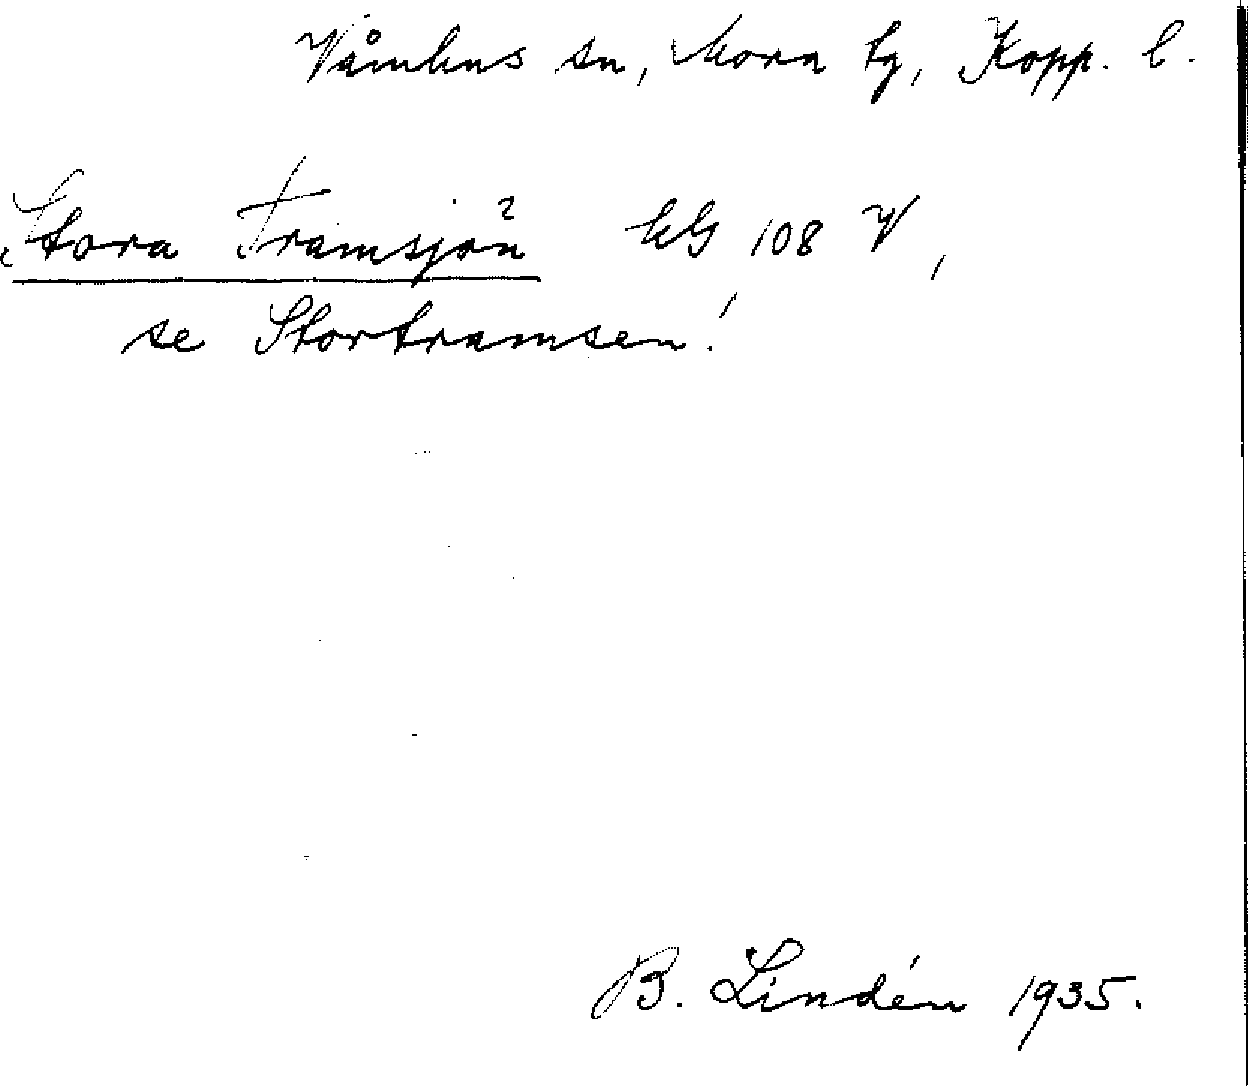 Våmhus sn, Mora tg, Kopp. l.
Stora Tramsjön GG 108 V,
se Stortramsen!
B. Lindén 1935.